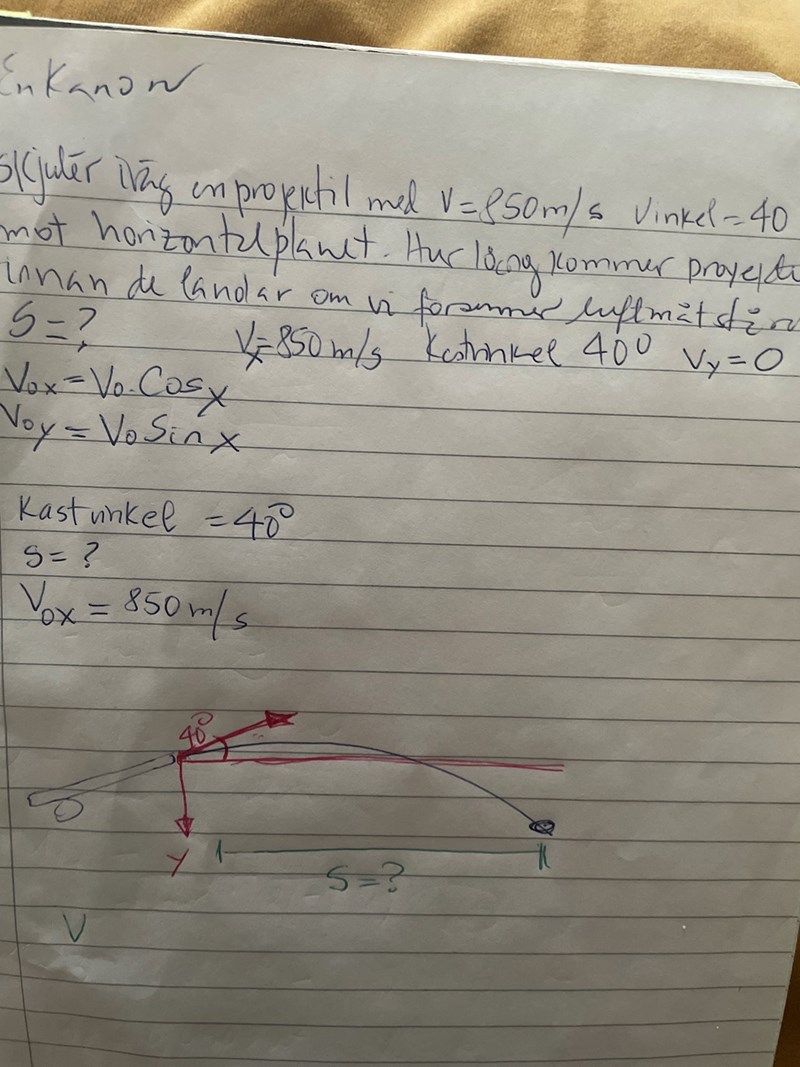 En Kanon
Skjuter iväg en projektil med V=850m/s Vinkel=40
mot horizontalplanet. Hur lång kommer projekti
innan de landar om vi försummer luftmåtstån
S=?
Vx=850m/s Kastvinkel 40° Vy=0
Vox=Vo.Cosx
Voy=VoSinx
Kastvinkel =40°
S=?
Vox=850m/s
40°
Y
S=?
V